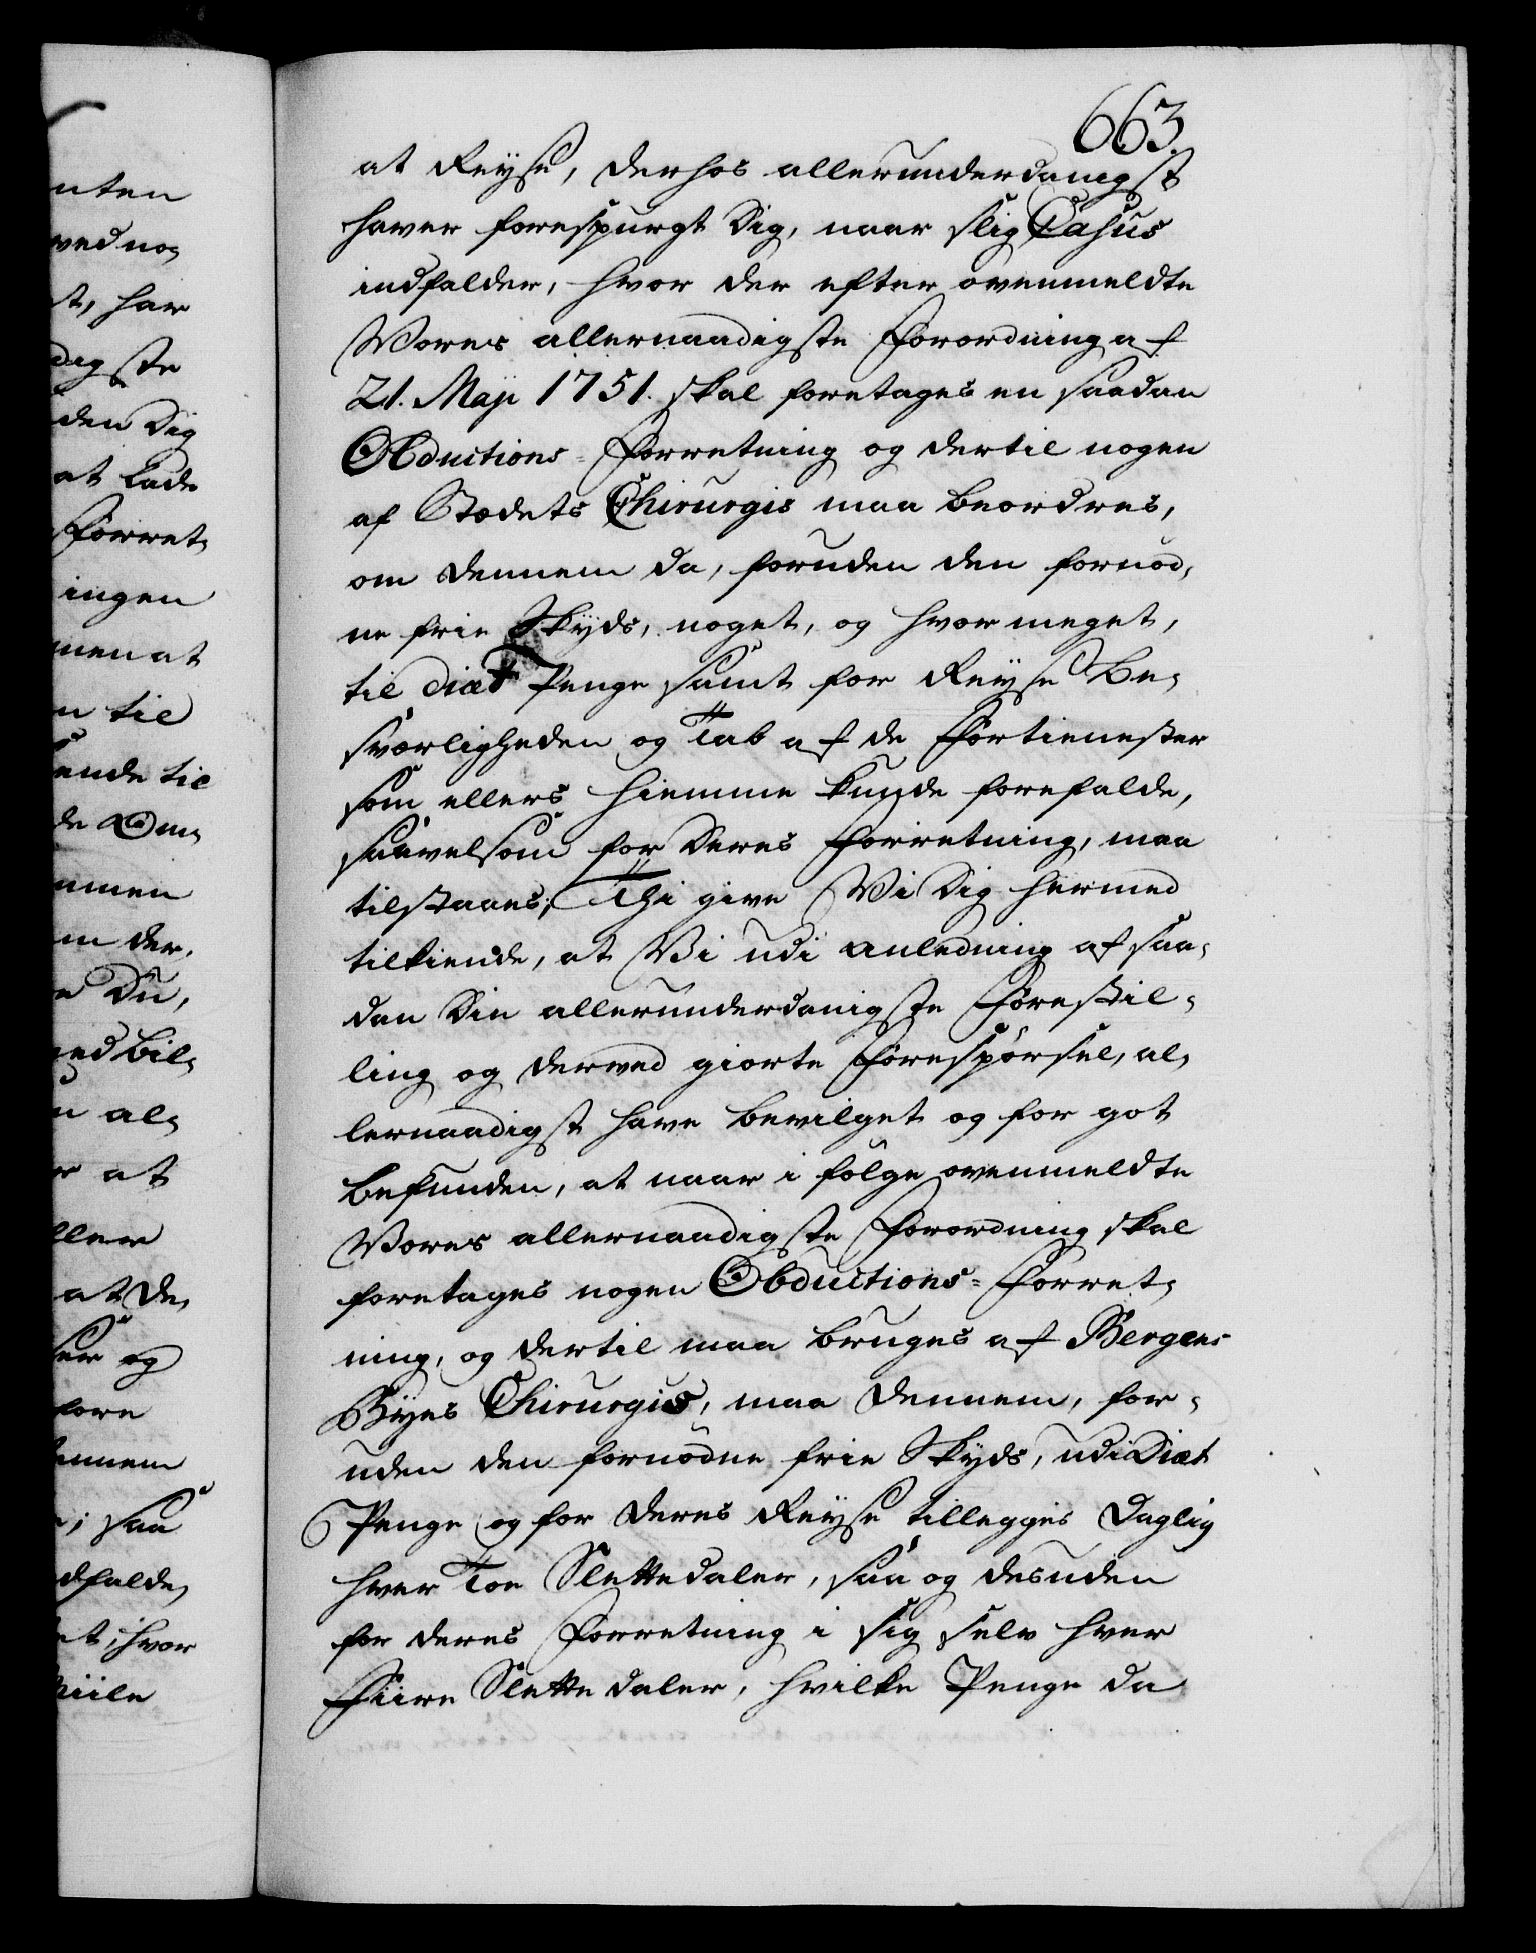 663.
at Reyse, derhos allerunderdanigst
haver forespurgt Dig, naar slig Casus
indfalder, hvor der efter ovenmeldte
Vores allernaadigste Forordning af
21. Maji 1751. skal foretages en saadan
Obductions-Forretning og dertil nogen
af Stædets Chirurgis maa beordres,
om dennem da, foruden den fornød,
ne frie Skyds, noget, og hvor meget,
til diæt Penge samt for Reyse Be,
sværligheden og Tab af de Fortienester
som ellers hiemme kunde forefalde,
saavelsom for deres Forretning, maa
tilstaaes; Thi give Vi Dig hermed
tilkiende, at Vi udi anledning af saa,
dan Din allerunderdanigste Forestil,
ling og derved giorte Forespørsel, al,
lernaadigst have bevilget og for got
befunden, at naar i følge ovenmeldte
Vores allernaadigste Forordning skal
foretages nogen Obductions-Forret,
ning, og dertil maa bruges af Bergens
Byes Chirurgis, maa dennem, for,
uden den fornødne frie Skyds, udi Diæt
Penge og for deres Reyse tillegges daglig
hver Toe Slettedaler, saa og desuden
for deres Forretning i sig selv hver
Fiire Slettedaler, hvilke Penge da
nten
ved no,
st, har
digste
den Dig
at lade
Forret,
ingen
men at
n til
sende til
de Om,
mmen
m der,
e Du,
ved bil,
n al,
r at
ller
at de,
ser og
fore
dennem
; saa
dfalde,
et, hvor
Miile